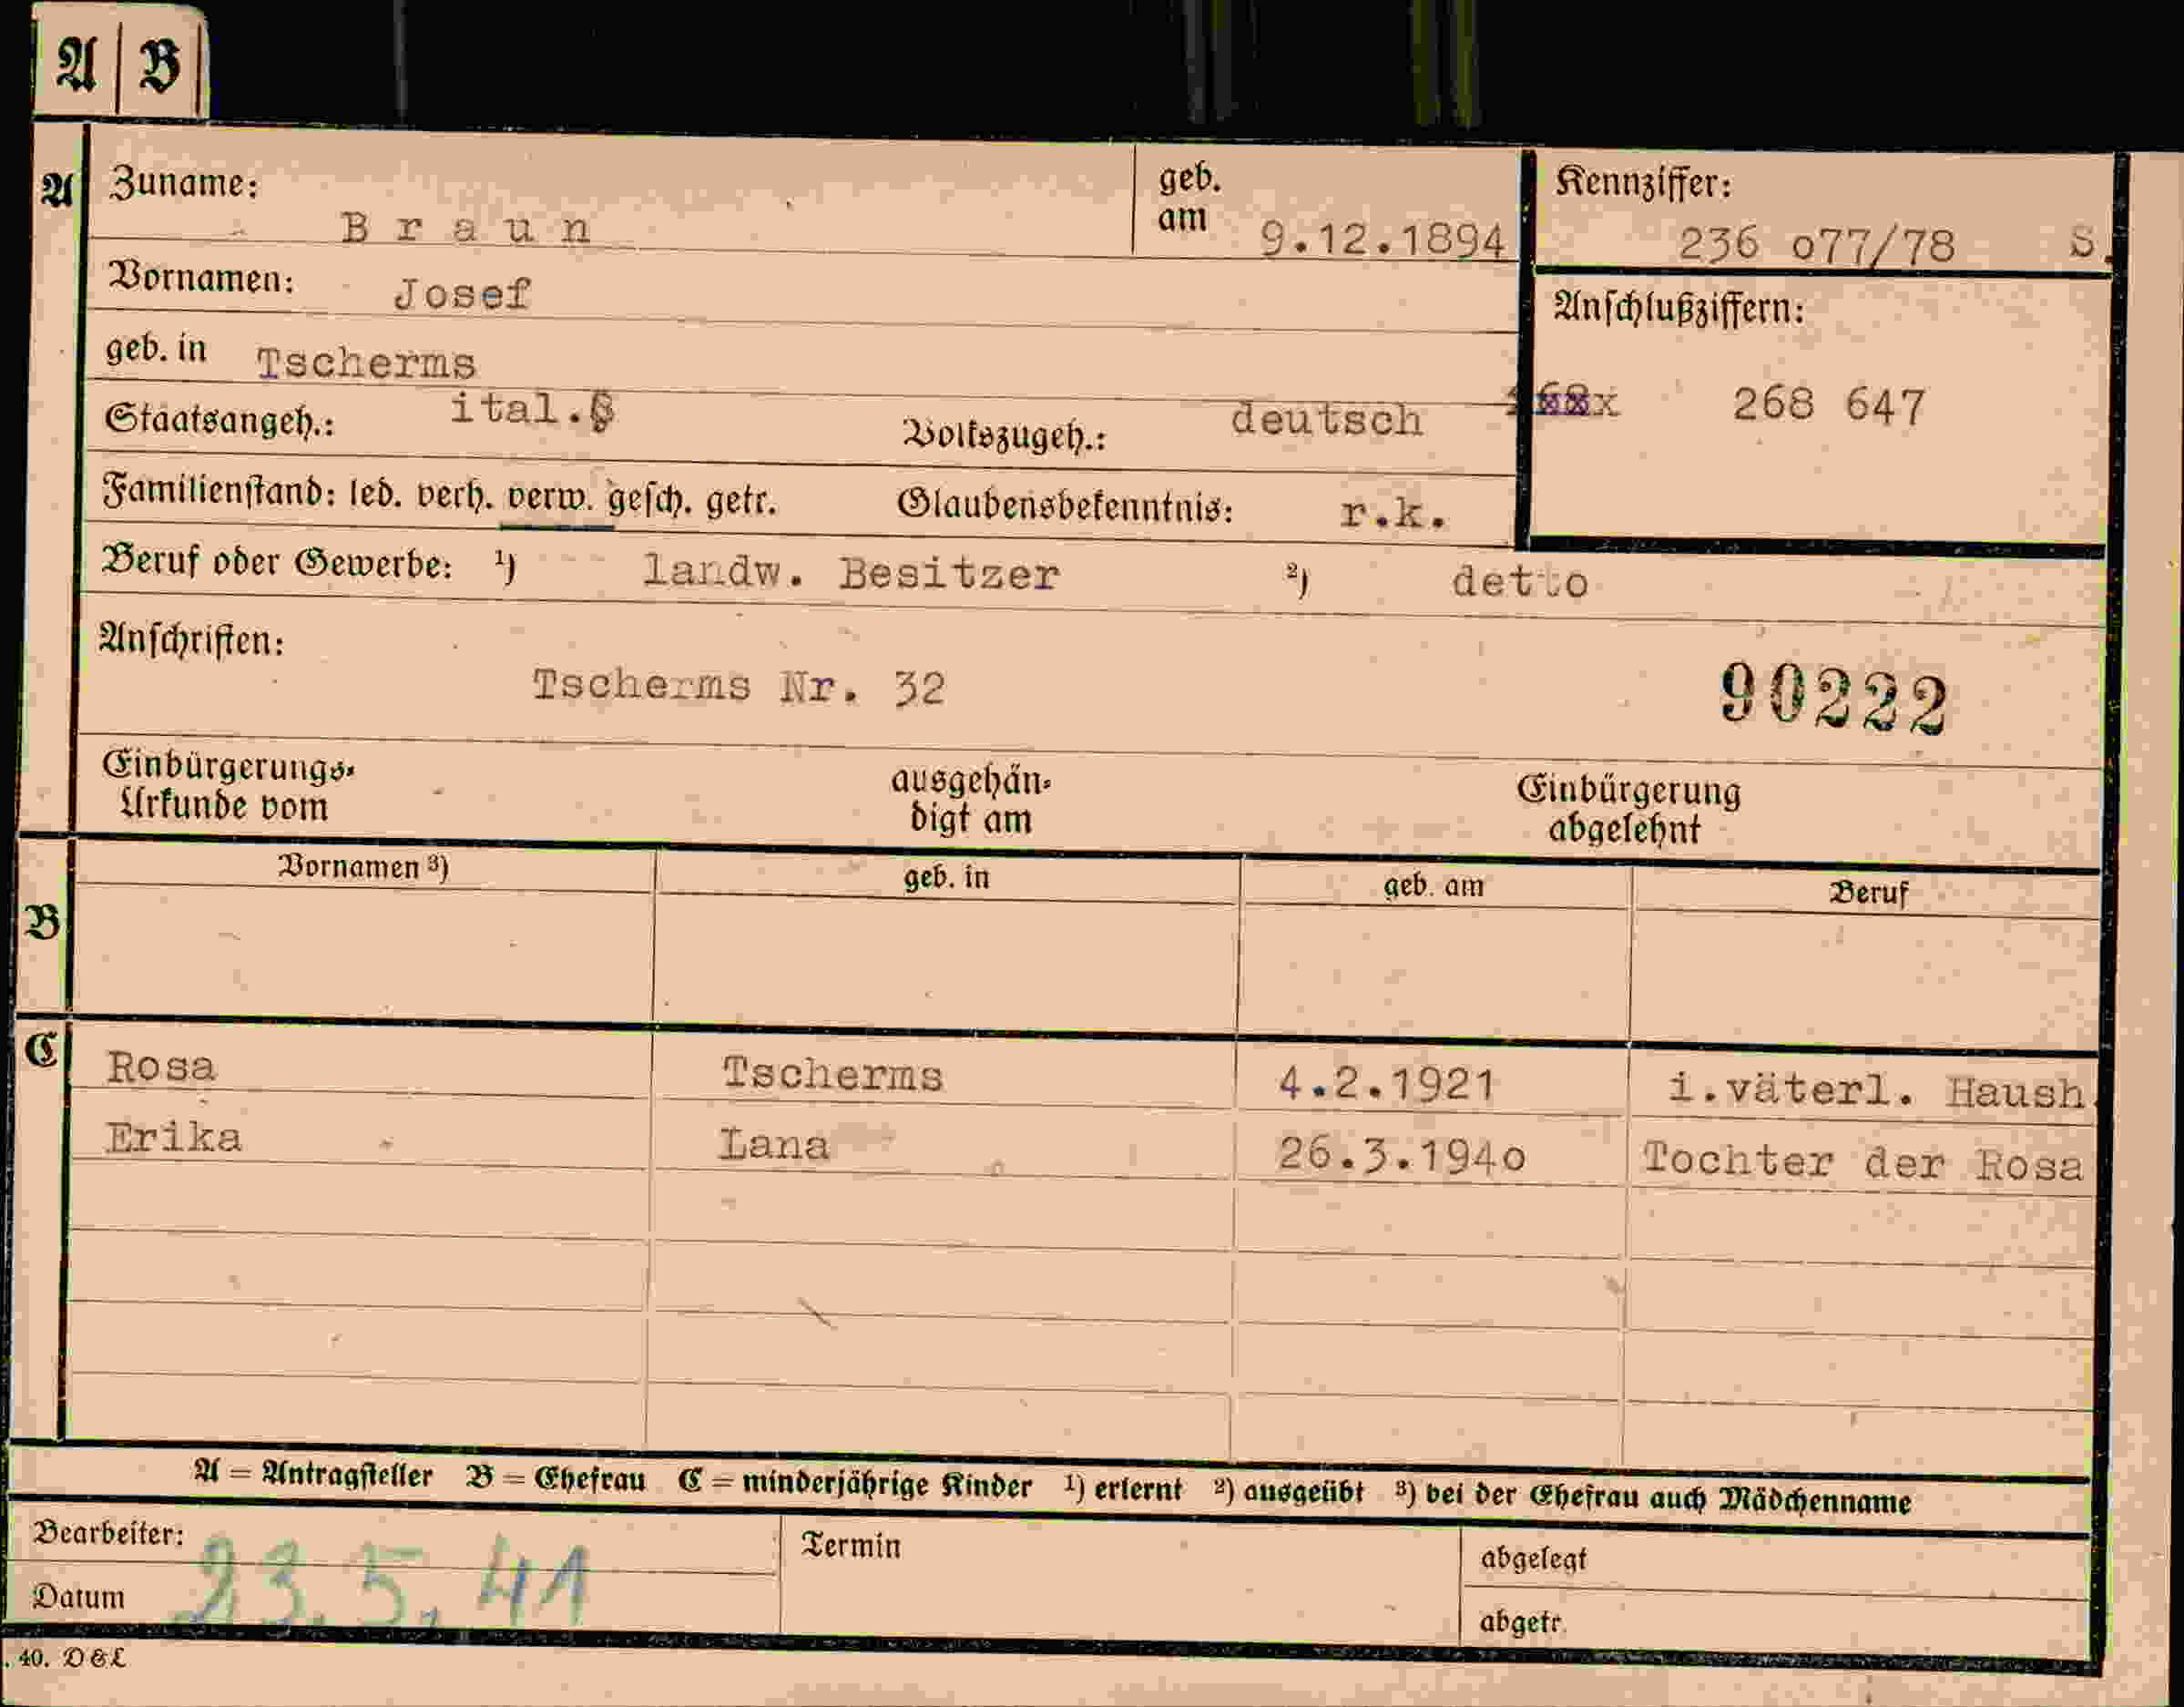 A B
A Zuname: Braun geb. am 9.12.1894 Kennziffer: 236 o77/78 S.
Vornamen: Josef Anschlußziffern:
geb. in Tscherms
Staatsangeh.: ital. Volkszugeh.: deutsch 268 647
Familienstand: led. verh. verw. gesch. getr. Glaubensbekenntnis: r.k.
Beruf oder Gewerbe: ¹) landw. Besitzer ²) detto
Anschriften:
Tscherms Nr. 32 90222
Einbürgerungs- ausgehän- Einbürgerung
Urkunde vom digt am abgelehnt
Vornamen ³) geb. in geb. am Beruf
B
C Rosa Tscherms 4.2.1921 i.väterl. Haush.
Erika Lana 26.3.194o Tochter der Rosa
A = Antragsteller B = Ehefrau C = minderjährige Kinder ¹) erlernt ²) ausgeübt ³) bei der Ehefrau auch Mädchenname
Bearbeiter: Termin abgelegt
Datum 23.5.41 abgetr.
. 40. D & L